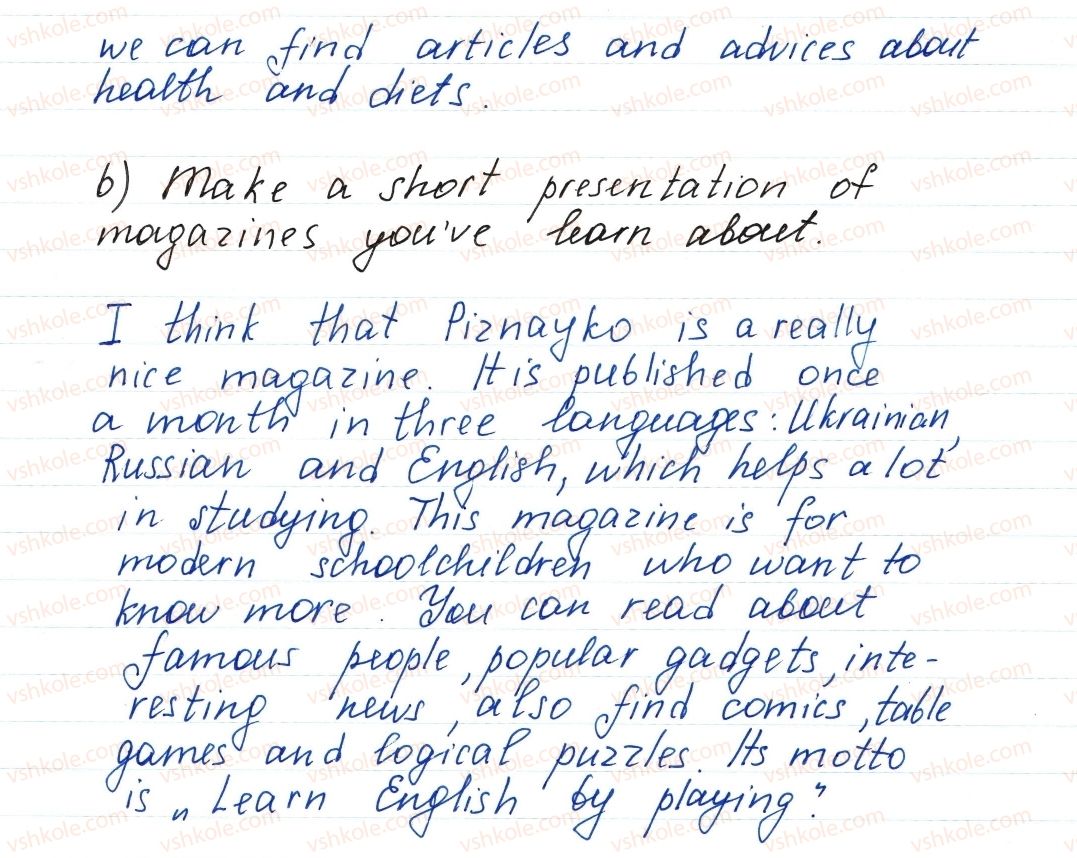 we can find articles and advices about
health and diets.
b) Make a short presentation of
magazines you've learn about.
I think that Piznayko is a really
nice magazine. It is published once
a month in three languages: Ukrainian,
Russian and English, which helps a lot
in studying. This magazine is for
modern schoolchildren who want to
know more. You can read about
famous people, popular gadgets, inte-
resting news, also find comics, table
games and logical puzzles. Its motto
is „Learn English by playing".
vshkole.com